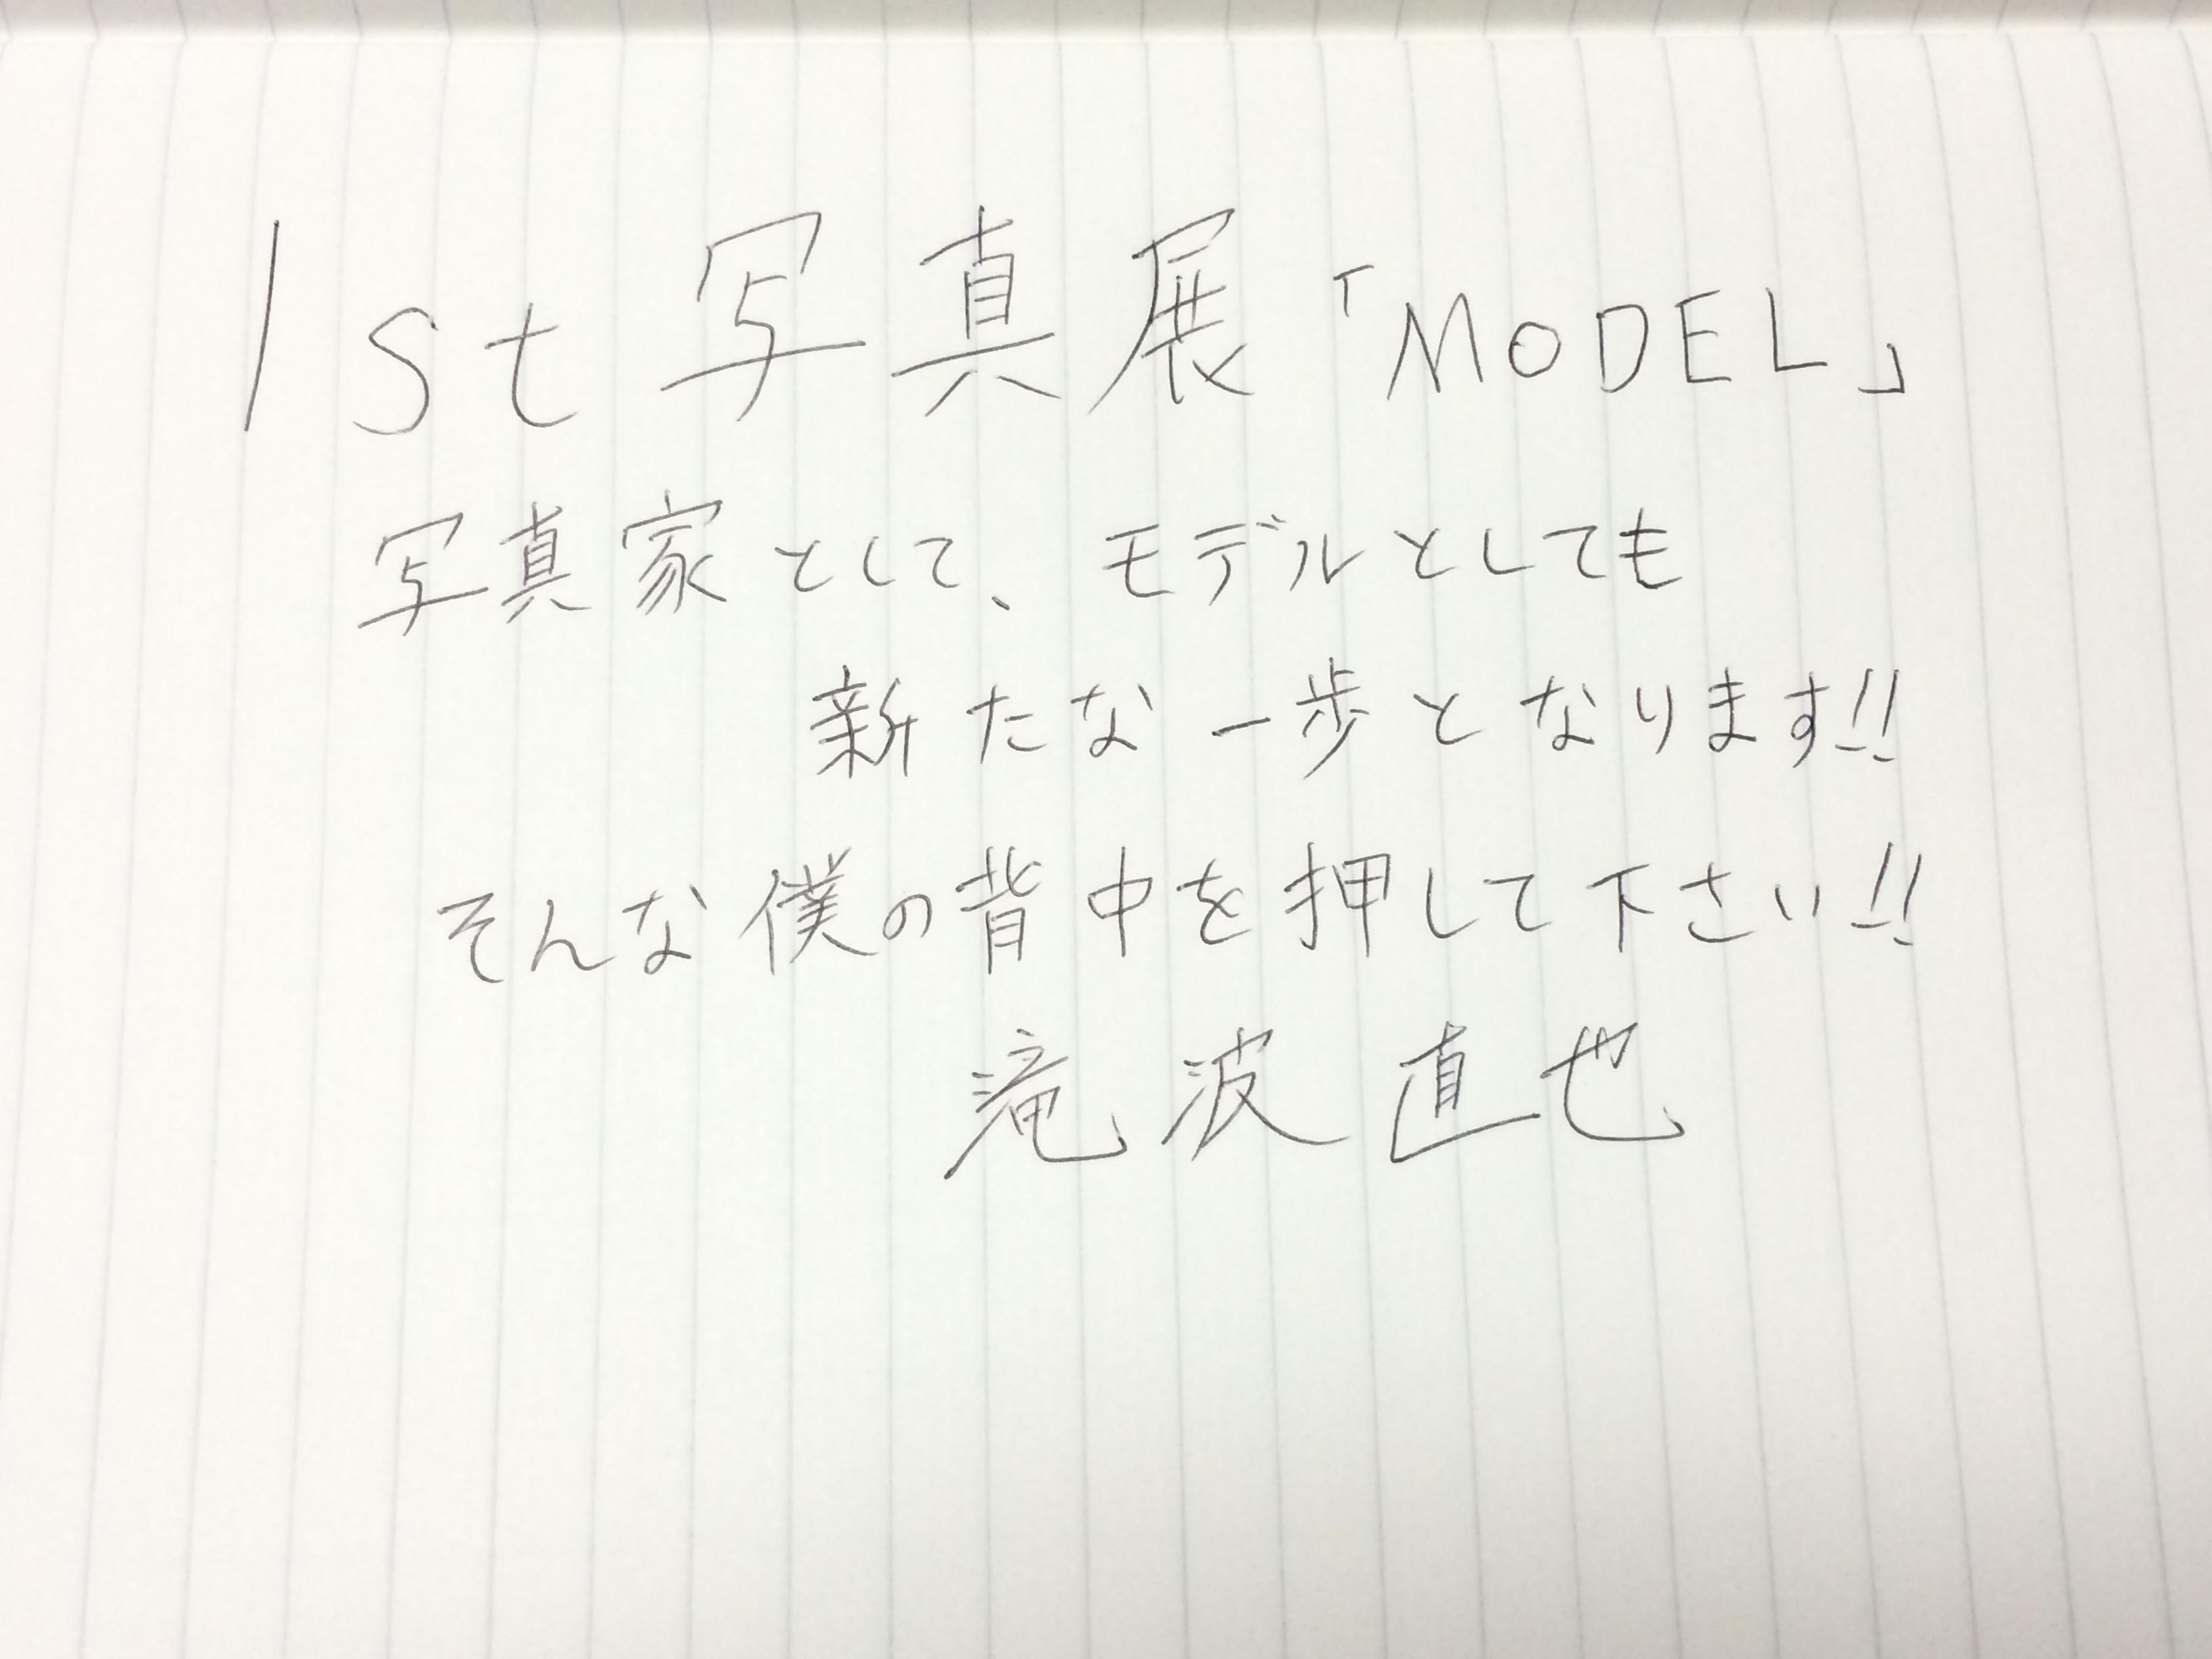 1st写真展「MODEL」
写真家として、モデルとしても
新たな一歩となります!!
そんな僕の背中を押して下さい!!
滝波直也